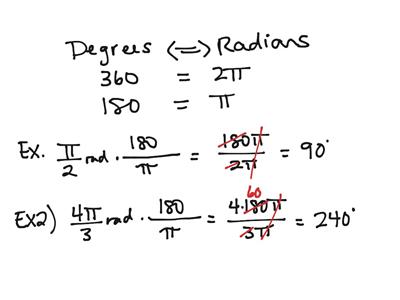 Degrees <=> Radians
360 = 2π
180 = π
Ex. π/2 rad · 180/π = 180π/2π = 90°
60
Ex2) 4π/3 rad · 180/π = 4·180π/3π = 240°